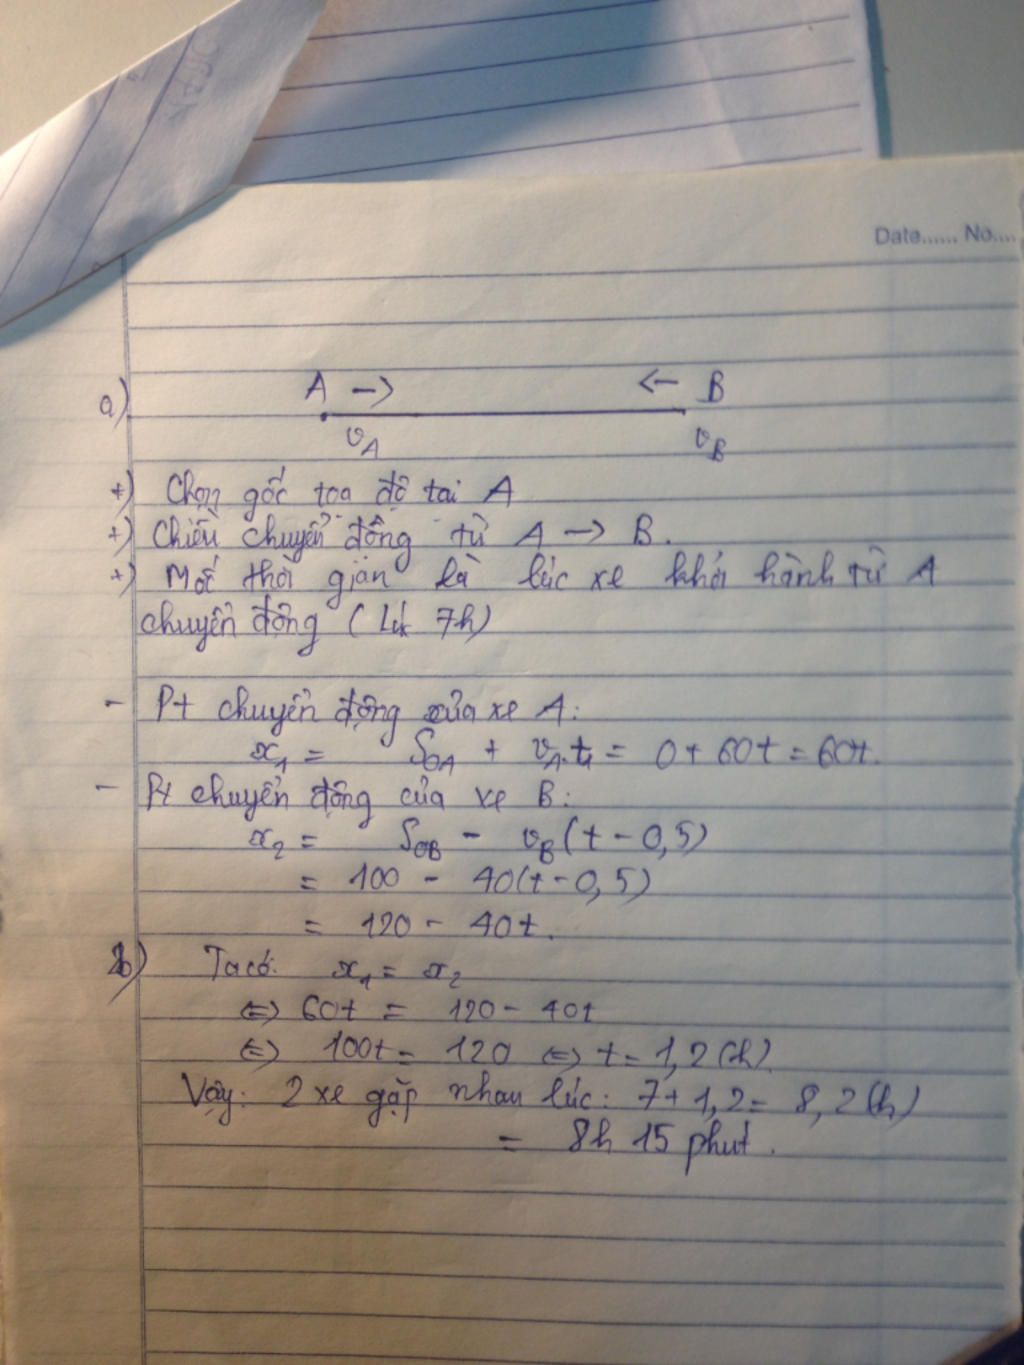 Date...... No....
a) A -> <- B
v_A v_B
+) Chọn gốc tọa độ tại A
+) Chiều chuyển động từ A -> B.
+) Mốc thời gian là lúc xe khởi hành từ A
chuyển động (Lúc 7h)
- Pt chuyển động của xe A:
x₁ = S_OA + v_A.t₁ = 0 + 60t = 60t.
- Pt chuyển động của xe B:
x₂ = S_OB - v_B(t - 0,5)
= 100 - 40(t - 0,5)
= 120 - 40t.
b) Ta có: x₁ = x₂
<=> 60t = 120 - 40t
<=> 100t = 120 <=> t = 1,2 (h)
Vậy: 2 xe gặp nhau lúc: 7 + 1,2 = 8,2 (h)
= 8h 15 phút.